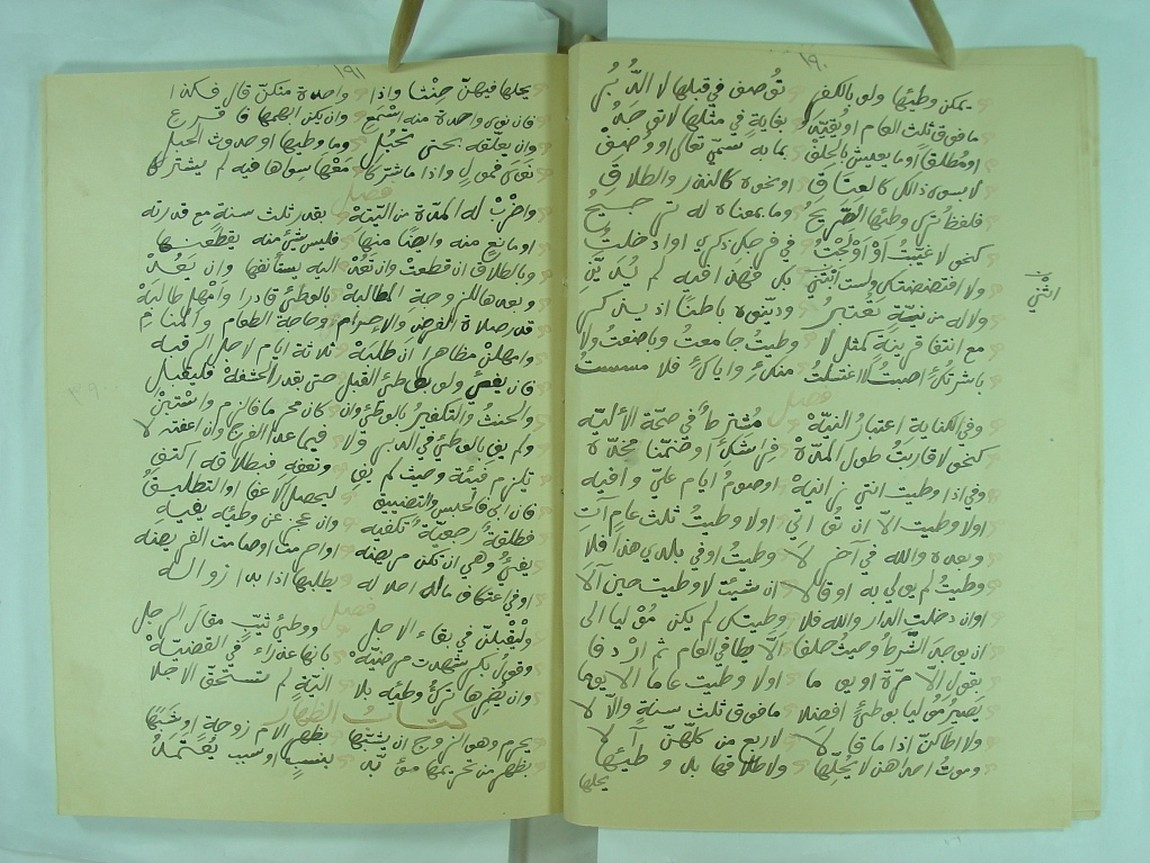 ١٩٠
يمكن وطئها ولو بالكفر تُوصف في قبلها لا الدُّبُرِ
ما فوق ثلث العام او يُقيّد بغايةٍ في مثلها لا توجَدُ
او مُطلقًا او ما يعيش بالحلفْ بما به سمّي تعالى او وُصِفْ
لا بسوى ذالك كالعتاقِ او نحوه كالنذر والطلاقِ
فلفظُ وطئها الصّريحُ وما بمعناه له صريحُ
كنحو لا غيّبتُ او أولَجْتُ في فرجكِ ذكري او ادخلتُ
ولا افتضضتكِ ولست انْثني بكل فهذا فيه لم يُدَيَّنِ
اثْنِي
ولا له من نيّةٍ تُعتبرُ وديّنوه باطنًا اذ يذكر
مع انتفا قرينةٍ كمثل لا وطيتُ جامعتُ وباضعتُ ولا
باشرتُكِ اصبتُ لا اغتسلتُ منكِ واياكِ فلا مسستُ
فصل
وفي الكناية اعتبار النيّهْ مُشترطٌ في صحّة الأليّه
كنحو لا قاربتُ طول المدّهْ فراشكِ او ضمّنا مخدّه
وفي اذا وطيت انتي زانيهْ او صوم ايام عليّ وافيه
اولا وطيت الاّ ان اولا وطيتُ ثلث عامٍ آتِ
وبعده والله في آخر لا وطيتُ او في بلدي هذا فلا
وطيتُ لم يولي به او قال لا ان شئتِ لا وطيت حين
او ان دخلتِ الدار والله فلا وطيتكِ لم يكن مُوليا الى
ان يوجدَ الشّرطُ وحيثُ حلفا الّا يطا في العام ثم
بقول الّا مرّة او يوما اولا وطيت عاما الا يوما
يصيرُ مُوليا بوطئٍ افضلا ما فوق ثلث سنةٍ والّا لا
ولا اطاكنّ اذا ما قالا لاربع من كلّهنّ
وموتُ احداهن لا يُحلّها ولا طلاقها بلى وطيئها
يحلها
١٩١
يحلها فيهنّ حنثا واذا واحدة منكنّ قال فكذا
فان نوى واحدة منه اسمع وان يكن ابهمها فاقرع
وان يعلّقه بحتى تحبُلي وما وطيها او حدوث الحبل
نوى فمولٍ واذا ما شرّكا مَعْها سواها فيه لم يشتركا
فصل
واضرِبْ له المدّة من اليّتهْ بقدر ثلث سنة مع قدرته
او مانعٍ منه وايضًا منها فليس شئ منه يقطعنها
وبالطلاق ان قطعتْ وان تَعُدْ اليه يستأنفها وان يَعُدْ
وبعدها للزوجة المطالبهْ بالوطئ قادرا وامهل طالبهْ
قدر صلاة الفرض والإحرام وحاجة الطعام والمنامِ
وامهلنْ مظاهرا ان طلبَهْ ثلاثة ايام لاجل الرقبه
فان يفئ ولو بوطئ القبل حتى بقدر الحشفهْ فليُقبل
والحنثُ والتكفيرُ بالوطئ وان كان محرما فالزم واستبن
ولم يف بالوطئ في الدبر ولا فيما عدا الفرج وان اعفته لا
تلزم فيئة وحيث لم يفِ وتعفه فبطلاقه اكتفي
فان ابى فالحبس والتضييقُ ليحصل الاعفا او التطليقُ
فطلقةٌ رجعيّة تكفيه وان عجز عن وطئه يفيه
يفئ وهي ان تكن مريضه او احرمت او صامت الفريضه
او في اعتكاف ماله احلا له يطلبها اذا بدا زواله
فصل
وليُقبلنّ في بقاء الاجل ووطئ ثيّبٍ مقالَ الرجل
وقولُ بكرٍ شهدت مرضيّه بانها عذراء في القضيّهْ
وان يُضِرها تركُ وطئه بلا اليّة لم تستحقّ الاجلا
كتاب الظهار
يحرم وهو الزوج ان يشبّها بظهر الام زوجة او شبهها
بظهر من تحريمها مؤبّد بنسبٍ او سبب يُعتمدُ